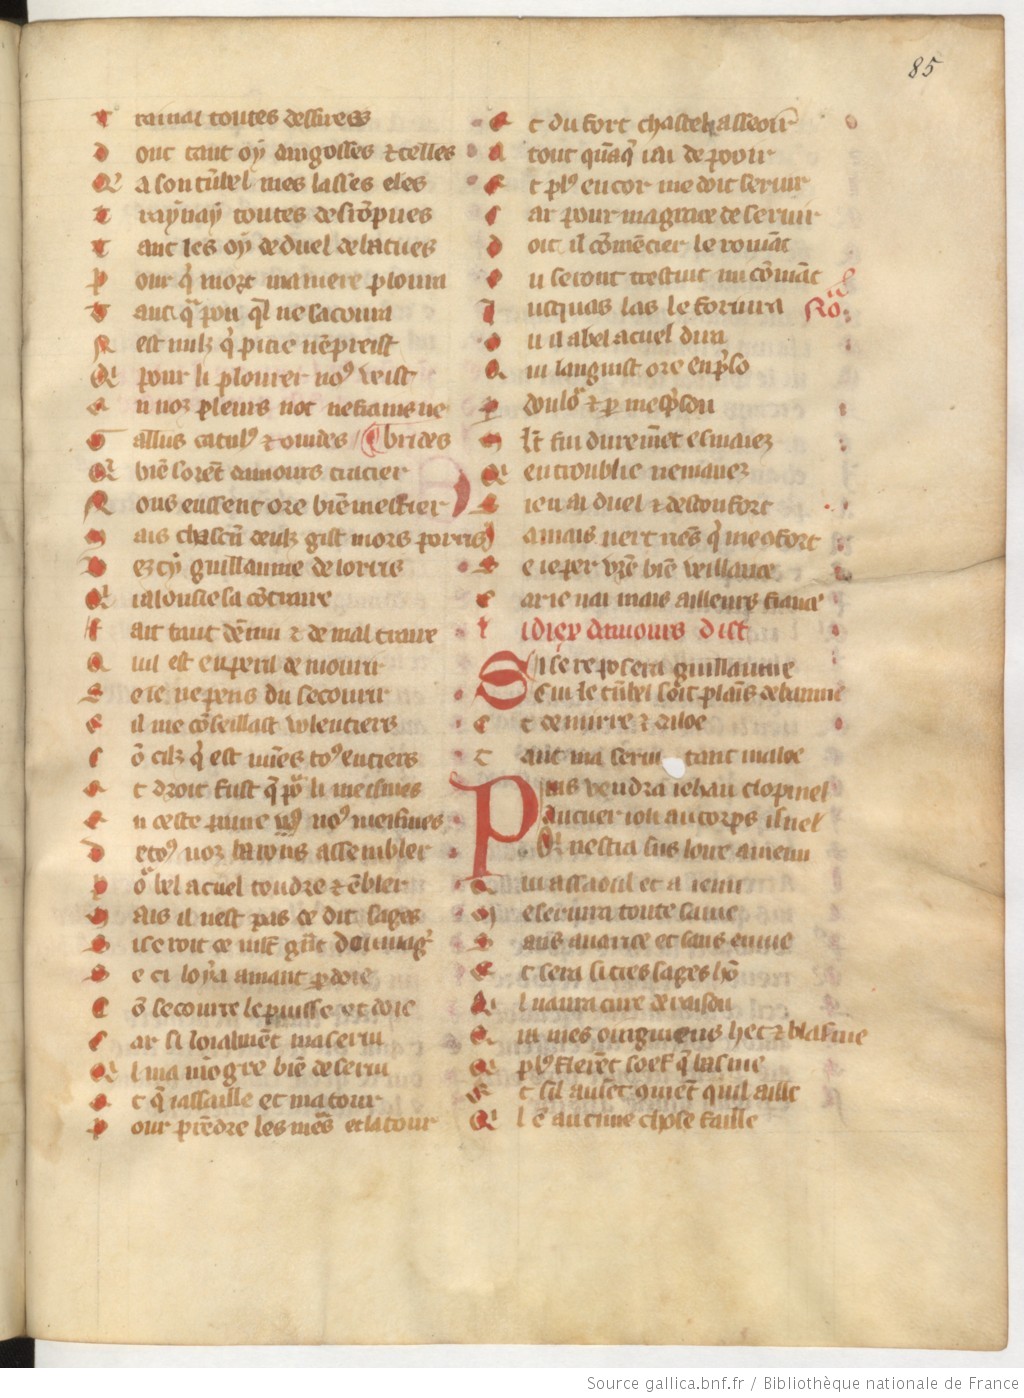 85
T rainai toutes dessirees
D ont tant oy angosses ⁊ celles
Q a son tu̅bel mes lasses eles
T raynay toutes desro̅pues
T ant les oy de duel batues
P our q̍ mort ma mere ploura
T ant q̃ pou q̃l ne sacoura
N est nulz q̍ pitie ne̅ preist
Q pour li plourer no⁹ veist
E n noz pleurs not ne frains ne
G allus catul⁹ ⁊ ouides brides
Q bie̅ sore̅t damours traitier
N ous eussent ore bie̅ mestier
M ais chascu̅ deulz gist mors porris
V ez cy guillaume de lorris
Q ialousie sa co̅traire
F ait tant de̅nui ⁊ de mal traire
Q uil est en peril de mourir
S e ie ne pens du secourir
E il me co̅seillast volentiers
C o̅ cilz q̍ est mie̅s to⁹ entiers
E t droit fust q̃ po᷒ li meismes
E n ceste paine no⁹ meismes
D e to⁹ noz barons assembler
P o᷒ bel acuel toudre ⁊ e̅bler
M ais il nest pas ce dit sages
S i seroit ce mlt̃ gr̃t doumag᷒
S e ci loyal amant perdoie
C o̅ secourre le puisse et doie
C ar si loialme̅t ma serui
Q l ma mo̅gre bie̅ deserui
E t q̍ iassaille et ma tour
P our pre̅dre les murs et la tour
E t du fort chastel asseoir
A tout qua̅q̍ iai de pooir
E t pl⁹ encor me doit seruir
C ar pour ma grace deseruir
D oit il co̅mencier le roma̅t
U seront trestuit mi co̅ma̅t
I usquas las le fornira Ro̅
O u il a bel acuel dira
Q ui languist ore en priso̅
P doulo᷒ ⁊ p mespriso̅
M lt̃ sui dureme̅t esmaiez
Q entroublie ne maiez
S ien ai duel ⁊ desconfort
I amais niert rie̅s q̍ me ꝯfort
S e ie per vr̃e bie̅ veillance
C ar ie nai mais ailleurs fiance
L i diex damours dist
S i se reposera guillaume
Cui le tu̅bel soit plai̅s de baume
E t de mirre ⁊ daloe
T ant ma serui tant ma loe
P uis vendra iehan clopinel
Au cuer ioli au corps isnel
Q nestra sus loire a meun
Q ui a saoul et a ieun
M e seruira toute sa uie
S ans auarice et sans enuie
E t sera si tres sages ho̅
Q l naura cure de raison
Q ui mes oingnemens het ⁊ blasme
Q pl⁹ flere̅t soef q̃ basme
E t sil auie̅t ꝯme̅t quil aille
Q l e̅ aucune chose faille